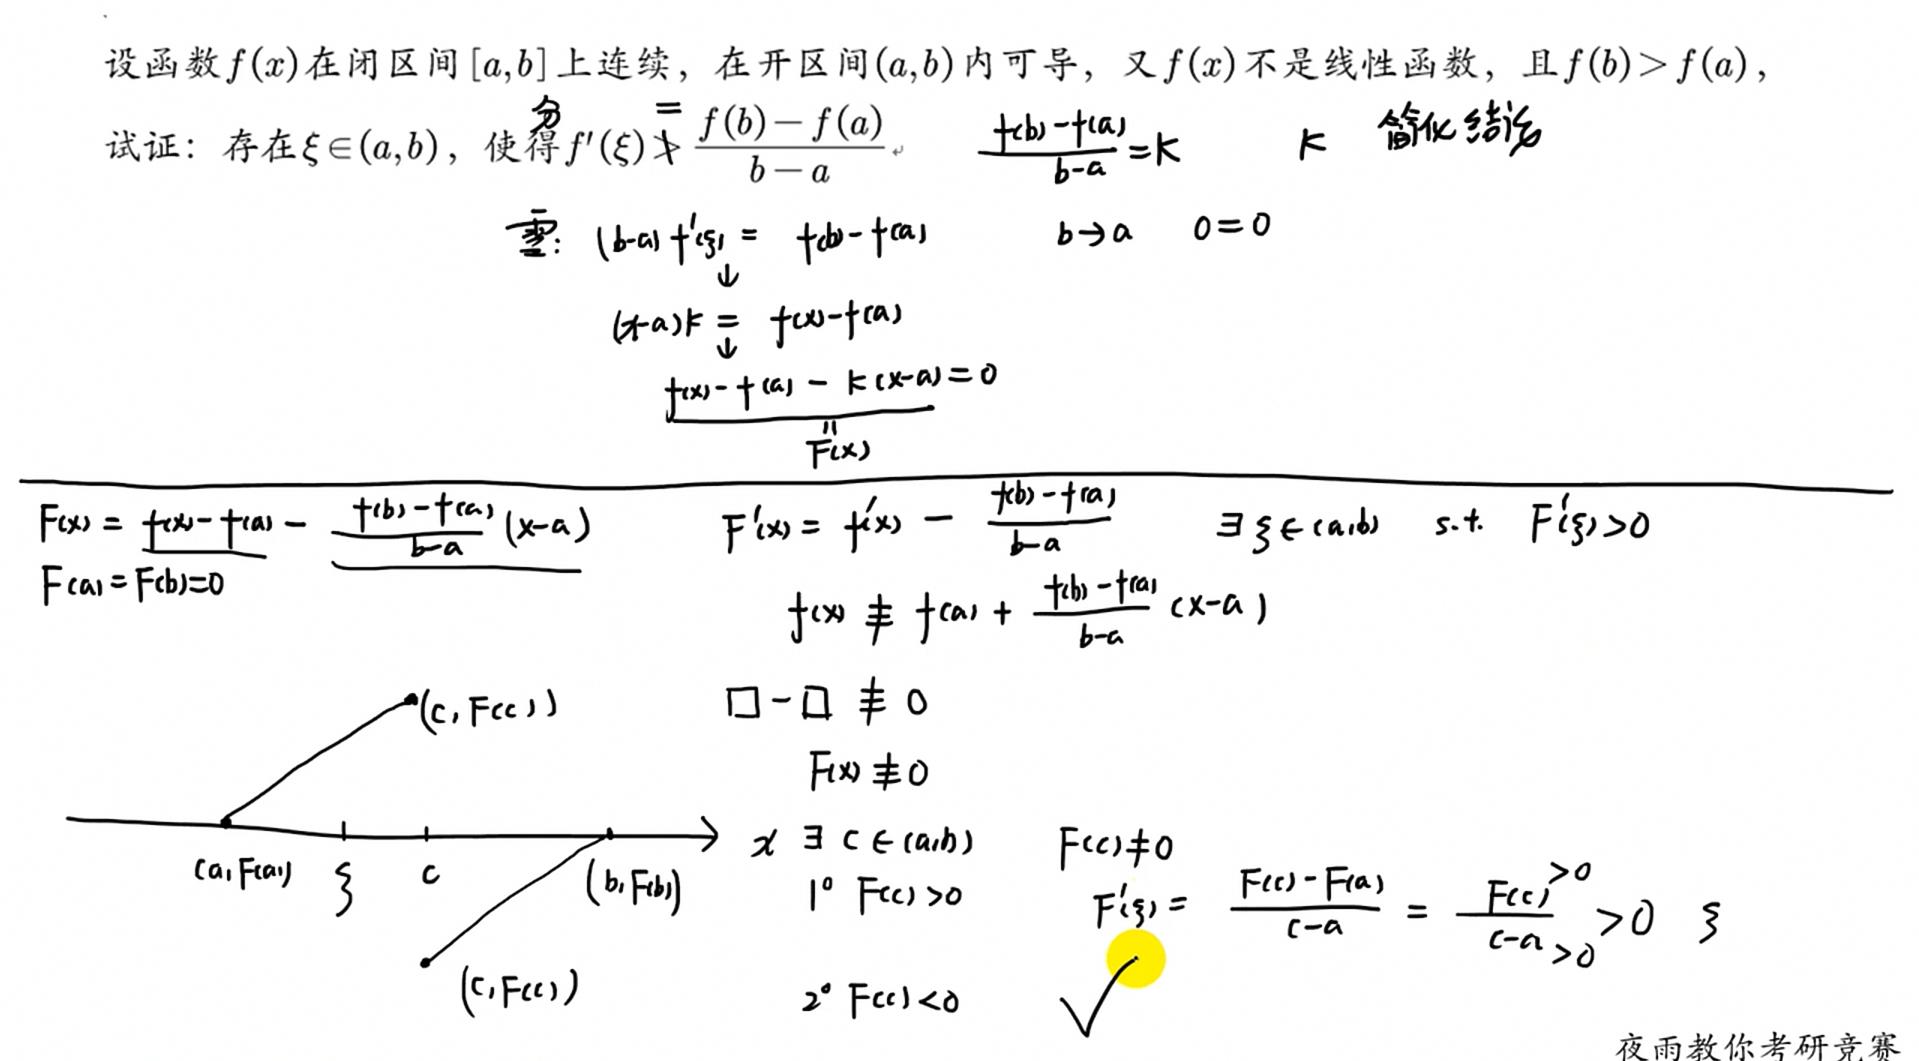 设函数f(x)在闭区间[a,b]上连续，在开区间(a,b)内可导，又f(x)不是线性函数，且f(b)>f(a)，
分 =
试证：存在ξ∈(a,b)，使得f'(ξ)>\frac{f(b)-f(a)}{b-a} \frac{f(b)-f(a)}{b-a}=k k 简化结论
(b-a)f'(ξ)= f(b)-f(a) b→a 0=0
↓
(x-a)k = f(x)-f(a)
↓
f(x)-f(a)-k(x-a)=0
=
F(x)
F(x)= f(x)-f(a)- \frac{f(b)-f(a)}{b-a}(x-a) F'(x)= f'(x) - \frac{f(b)-f(a)}{b-a} ∃ξ∈(a,b) s.t. F'(ξ)>0
F(a)=F(b)=0
f(x)≢f(a)+\frac{f(b)-f(a)}{b-a}(x-a)
(c,F(c)) □-□≢0
F(x)≢0
x ∃c∈(a,b) F(c)≠0
(a,F(a)) ξ c (b,F(b)) 1° F(c)>0 F'(ξ)= \frac{F(c)-F(a)}{c-a} = \frac{F(c)>0}{c-a>0}>0 ξ
(c,F(c)) 2° F(c)<0 √
夜雨教你考研竞赛